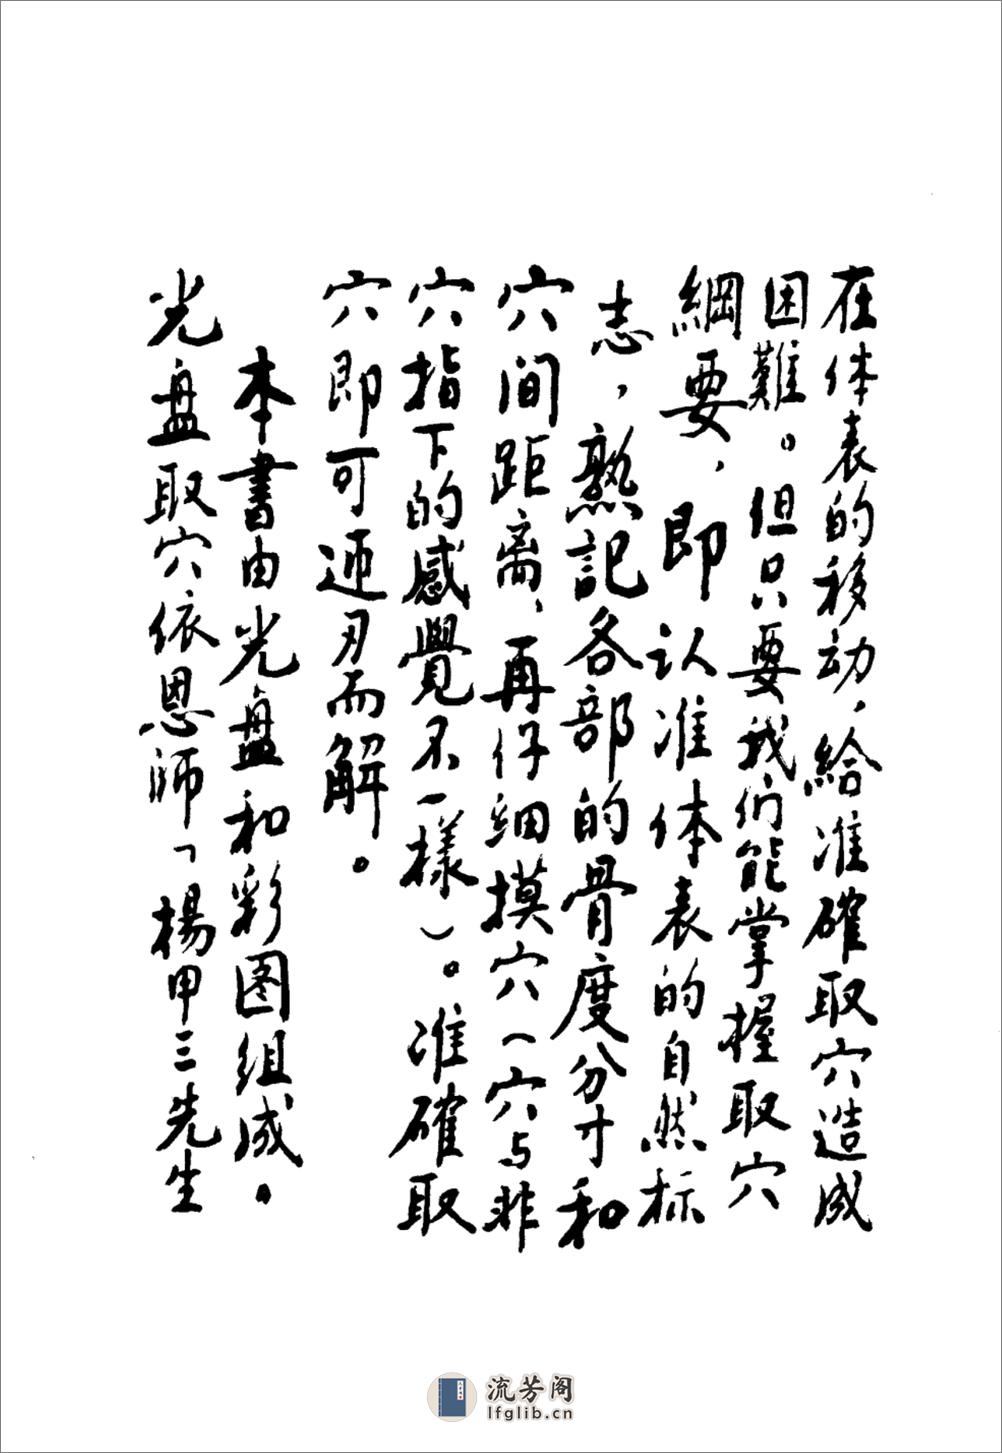 在体表的移动，給准確取穴造成
困難。但只要我们能掌握取穴
綱要，即认准体表的自然标
志，熟記各部的骨度分寸和
穴间距离，再仔细摸穴（穴与非
穴指下的感覺不一樣）。准確取
穴即可迎刃而解。
本書由光盘和彩图组成。
光盘取穴依恩师「楊甲三先生
流芳阁
lfglib.cn